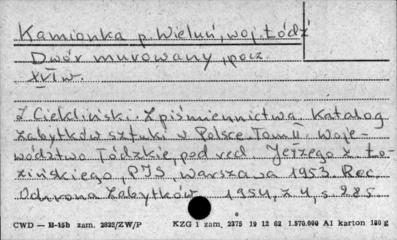 Kamionka p. Wieluń, woj. Łódź
Dwór murowany, pocz.
XVI w.
Z Ciekliński. Z piśmiennictwa. Katalog
zabytków sztuki w Polsce Tom II. Woje-
wództwo Łódzkie, pod red Jerzego Z. Ło-
zińskiego, PIS, Warszawa 1953. Rec.
Ochrona Zabytków 1954, z 4, s. 285.
CWD — B-15b zam. 2822/ZW/P KZG 1 zam. 2375 19 12 62 1.570.000 A1 karton 180 g